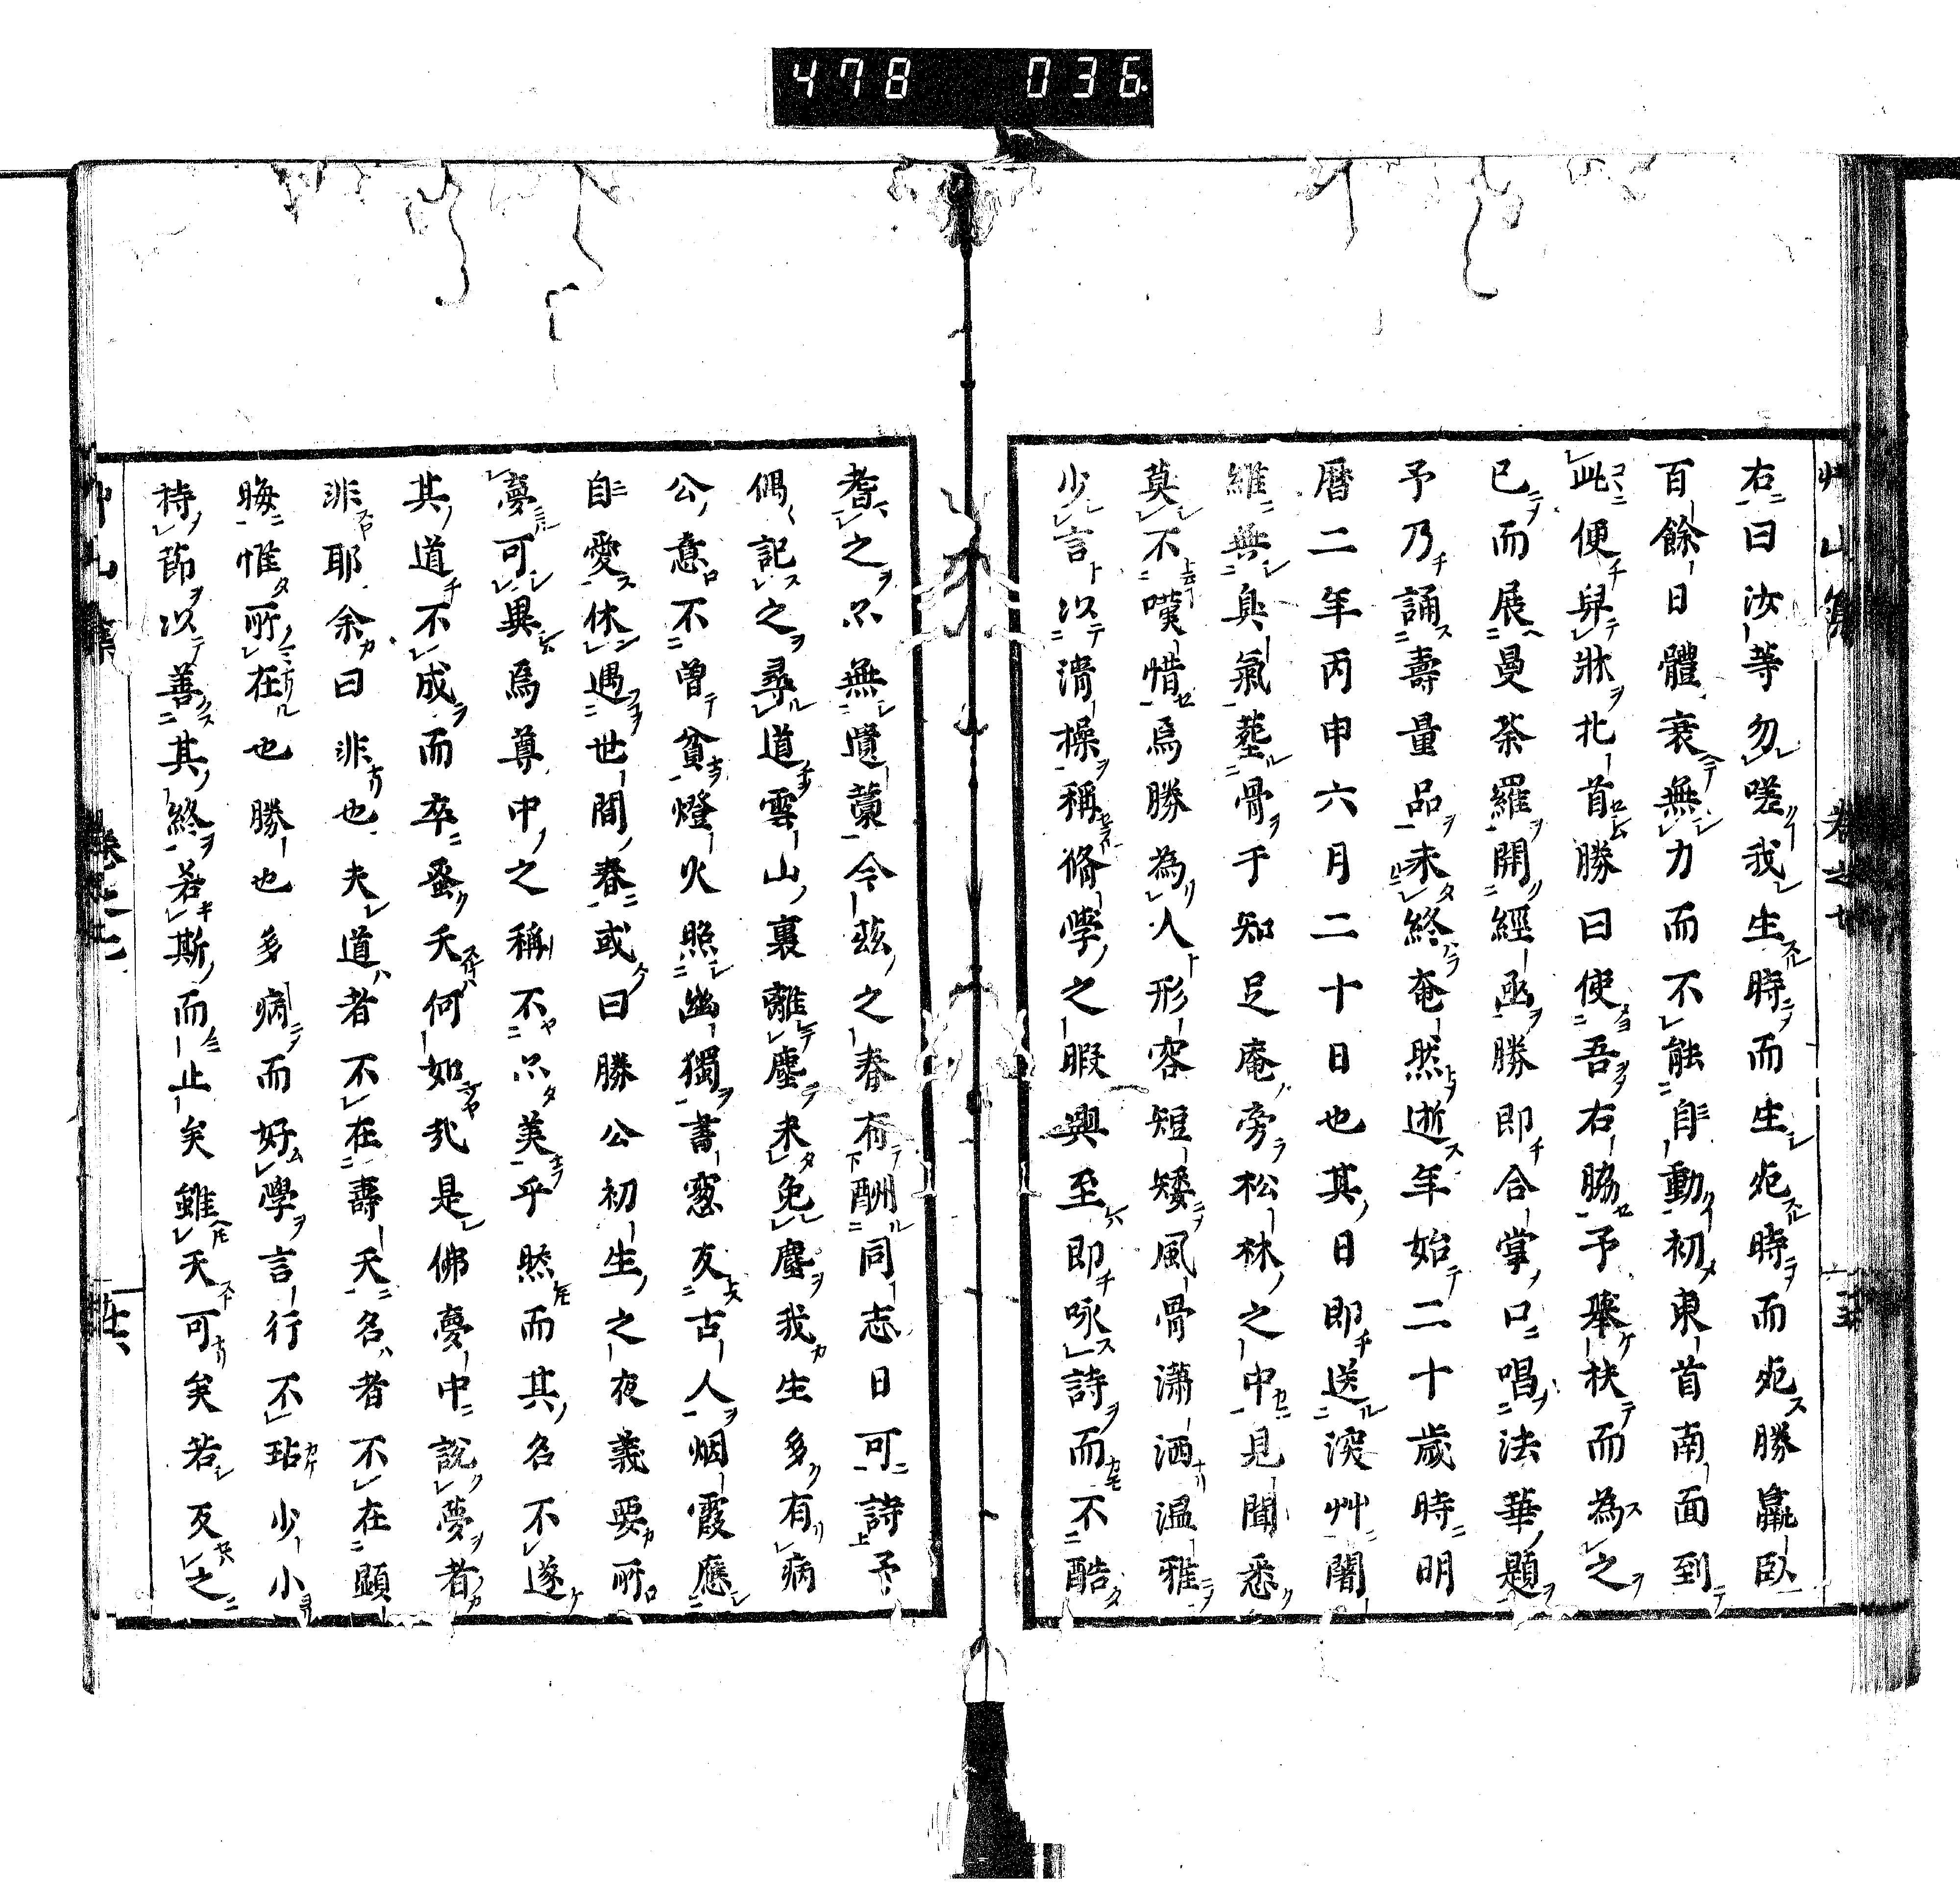 478 036
右曰汝等勿嗟我生時而生死時而死勝羸臥
百餘日體衰無力而不能自動初東首南面到
此便舁牀北首勝曰使吾右脇予擧扶而為之
已而展曼荼羅開經函勝即合掌口唱法華題
予乃誦壽量品未終奄然逝年始二十歲時明
曆二年丙申六月二十日也其日即送深艸闍
維無臭氣塟骨于知足庵旁松林之中見聞悉
莫不嘆惜焉勝為人形容短矮風骨瀟洒温雅
少言以清操稱脩學之暇興至即咏詩而不酷
耆之只無遺藁今茲之春有酬同志日可詩予
偶記之尋道雲山裏離塵未免塵我生多有病
公意不曾貧燈火照幽獨書窓友古人烟霞應
自愛休遇世間春或曰勝公初生之夜義要所
夢可異焉尊中之稱不只美乎然而其名不遂
其道不成而卒蚤夭何如哉是佛夢中說夢者
非耶余曰非也夫道者不在壽夭名者不在顯
晦惟所在也勝也多病而好學言行不玷少小
持節以善其終若斯而止矣雖夭可矣若反之
艸山集 卷之七 廿六